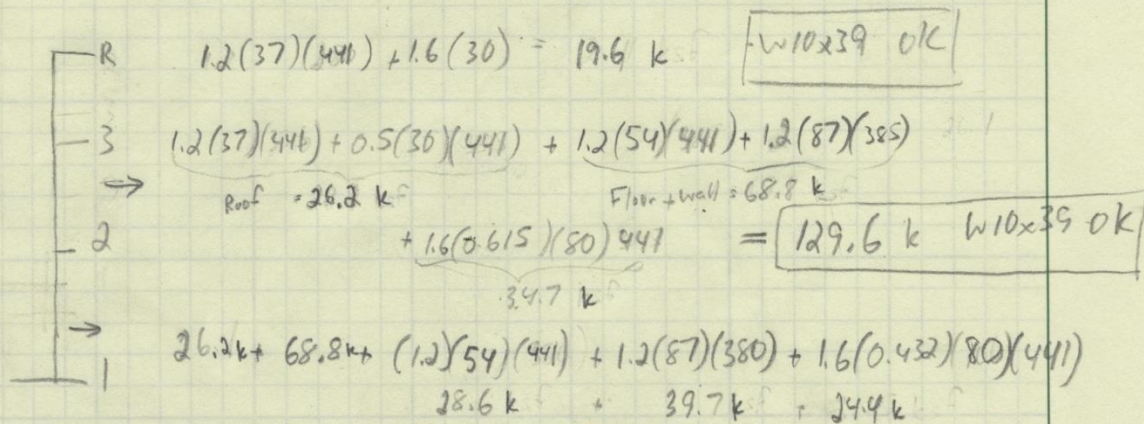 R 1.2(37)(441) + 1.6(30) = 19.6 k W10x39 OK
3 1.2(37)(441) + 0.5(30)(441) + 1.2(54)(441) + 1.2(87)(385)
→ Roof = 26.2 k Floor + wall = 68.8 k
2 + 1.6(0.615)(80)441 = 129.6 k W10x39 OK
34.7 k
→ 26.2k + 68.8k + (1.2)(54)(441) + 1.2(87)(380) + 1.6(0.432)(80)(441)
1 28.6 k + 39.7 k + 24.4 k